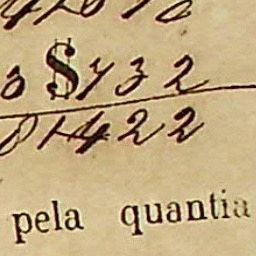 3$732
81422
pela quantia